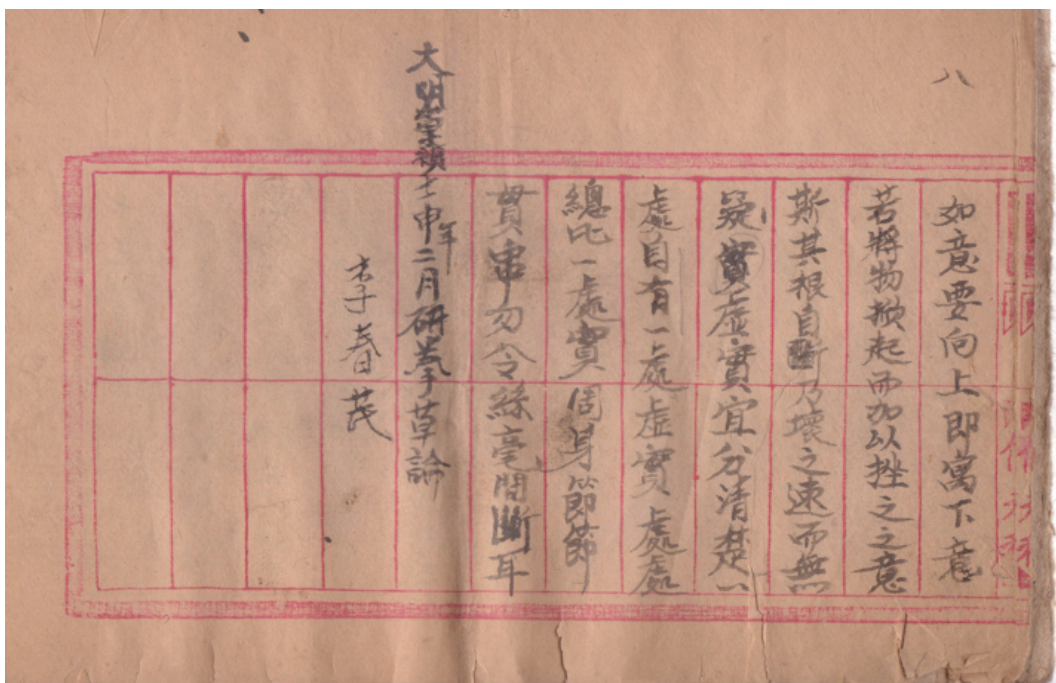 八
如意要向上即寓下意
若將物掀起而加以挫之之意
斯其根自斷乃壞之速而無
疑實虛實宜分清楚一
處自有一處虛實處處
總此一處實周身節節
貫串勿令絲毫間斷耳
大明崇禎壬申年二月研拳手草論
李春茂